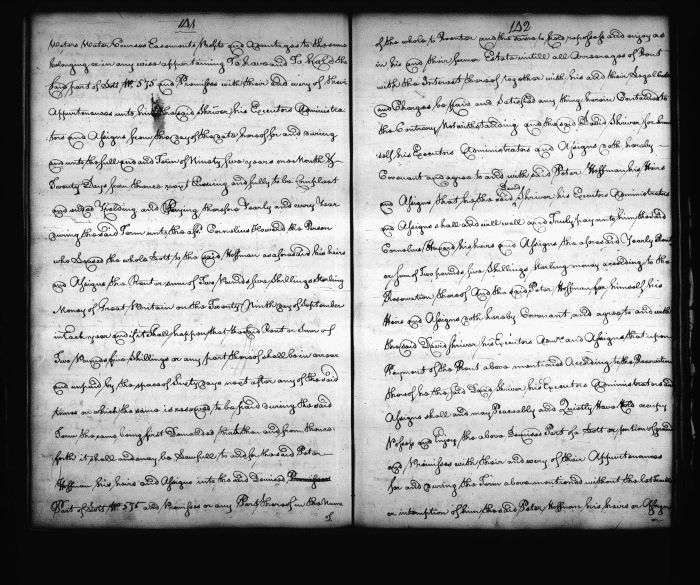 141
Waters Water Courses Easements Profits and Advantages to the same
belonging or in any wise appertaining To have and To hold the
said part of Lott No. 535 and Premisses with their and every of their
Appurtenances unto him the said Shriver his Executors Administra
tors and Assigns from the day of the date hereof for and during
and unto the full end and Term of Ninety five years one Month &
Twenty Days from thence next Ensuing and fully to be Compleat
and ended Yielding and Paying therefore Yearly and every Year
during the said Term unto the afd. Cornelius Howard the Person
who Leased the whole Lott to the said Hoffman as aforesaid his heirs
and Assigns the Rent or sum of Two Pounds five Shillings Sterling
Money of Great Britain on the Twenty Ninth day of September
in Each year and if it shall happen that the said Rent or Sum of
Two Pounds five Shillings or any part thereof shall be in arrear
and unpaid by the space of Sixty days next after any of the said
times on which the same is reserved to be paid during the said
Term the same being first Demanded that then and from thence
forth it shall and may be Lawfull to and for the said Peter
Hoffman his heirs and Assigns into the said Demised Premisses
Part of Lott No. 535 and Premisses or any Part thereof in the Name
of
142
of the whole to Reenter and the same to hold repossess and enjoy as
in his and their former Estate untill all Arrearages of Rent
with the Interest thereof together with his and their Legal Costs
and Charges be paid and Satisfied any thing herein Contained to
the Contrary Notwithstanding and the said David Shriver for him
self his Executors Administrators and Assigns doth hereby
Covenant and agree to and with said Peter Hoffman his Heirs
and Assigns that he the said David Shriver his Executors Administrators
and Assigns shall and will well and Truly pay unto him the said
Cornelius Howard his heirs and Assigns the aforesaid Yearly Rent
or sum of Two pounds five Shillings Sterling money according to the
Reservation thereof And the said Peter Hoffman for himself his
Heirs and Assigns doth hereby Covenant and agree to and with
the said David Shriver his Executors Admrs. and Assigns that upon
Payment of the Rent above mentioned According to the Reservation
thereof he the said David Shriver his Executors Administrators and
Assigns shall and may Peaceably and Quietly Have Hold occupy
Possess and Enjoy the above Demised Part of a Lott or portion of Ground
and Premisses with their and every of their Appurtenances
for and during the Term above mentioned without the
or interruption of him the said Peter Hoffman his heirs or Assigns
or